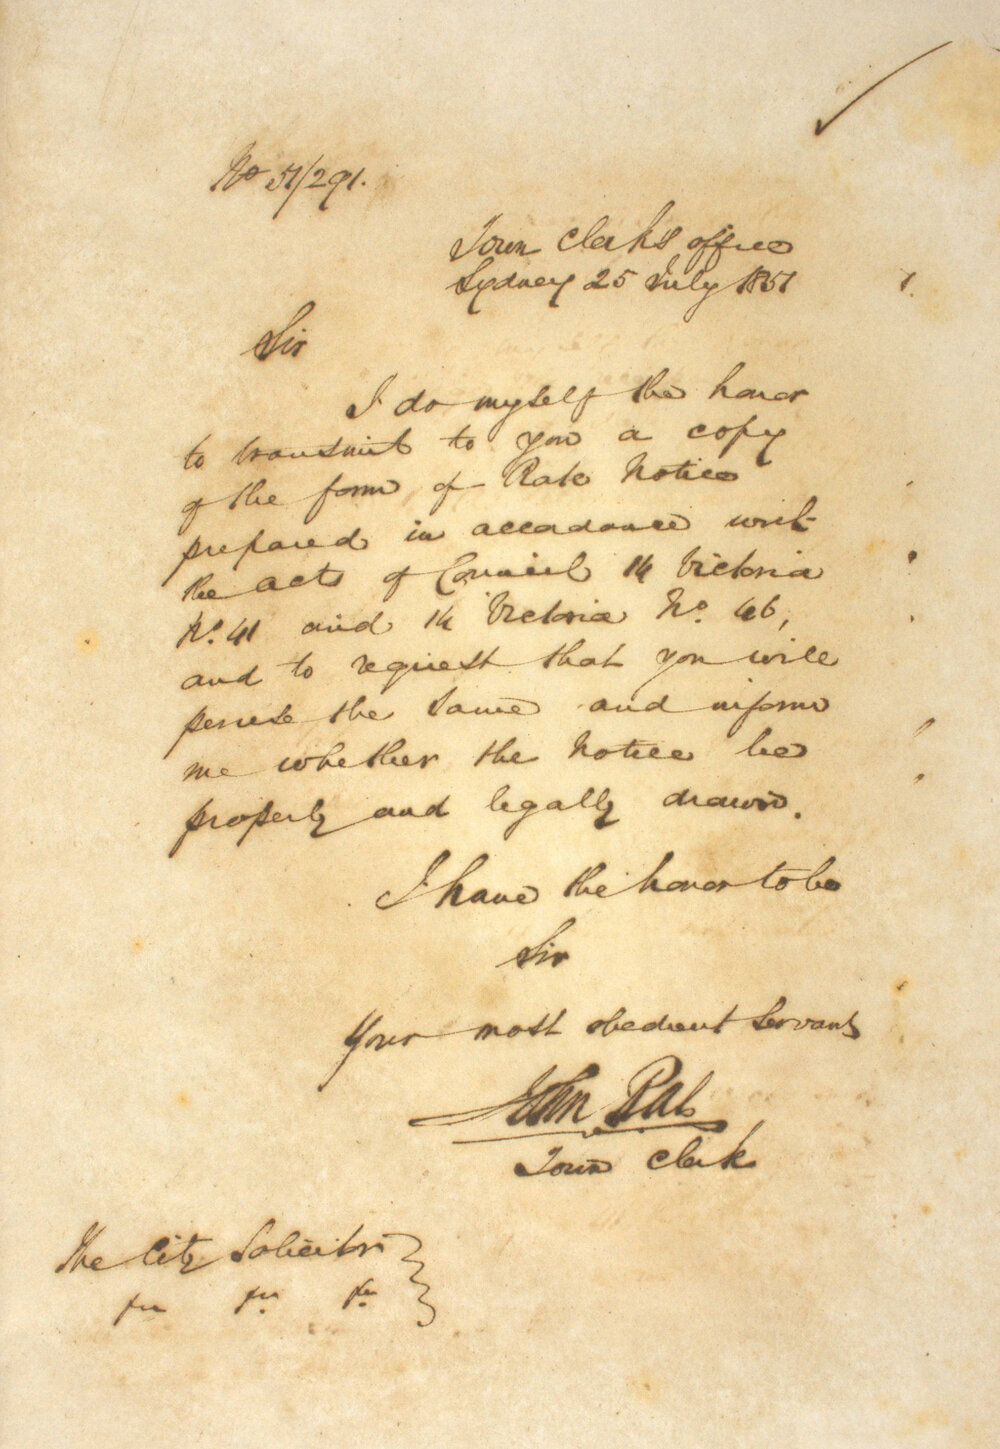 No 51/291.
Town Clerk's office
Sydney 25 July 1851
Sir
I do myself the honor
to transmit to you a copy
of the form of Rate Notice
prepared in accordance with
the acts of Council 14 Victoria
No. 41 and 14 Victoria No. 46,
and to request that you will
peruse the same and inform
me whether the Notice be
properly and legally drawn.
I have the honor to be
Sir
Your most obedient Servant
John Rae
Town Clerk
The City Solicitor